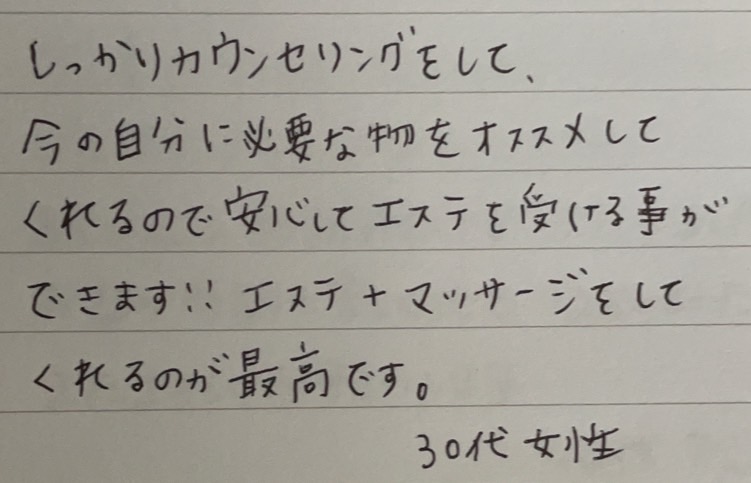 しっかりカウンセリングをして、
今の自分に必要な物をオススメして
くれるので安心してエステを受ける事が
できます!! エステ+マッサージをして
くれるのが最高です。
30代 女性